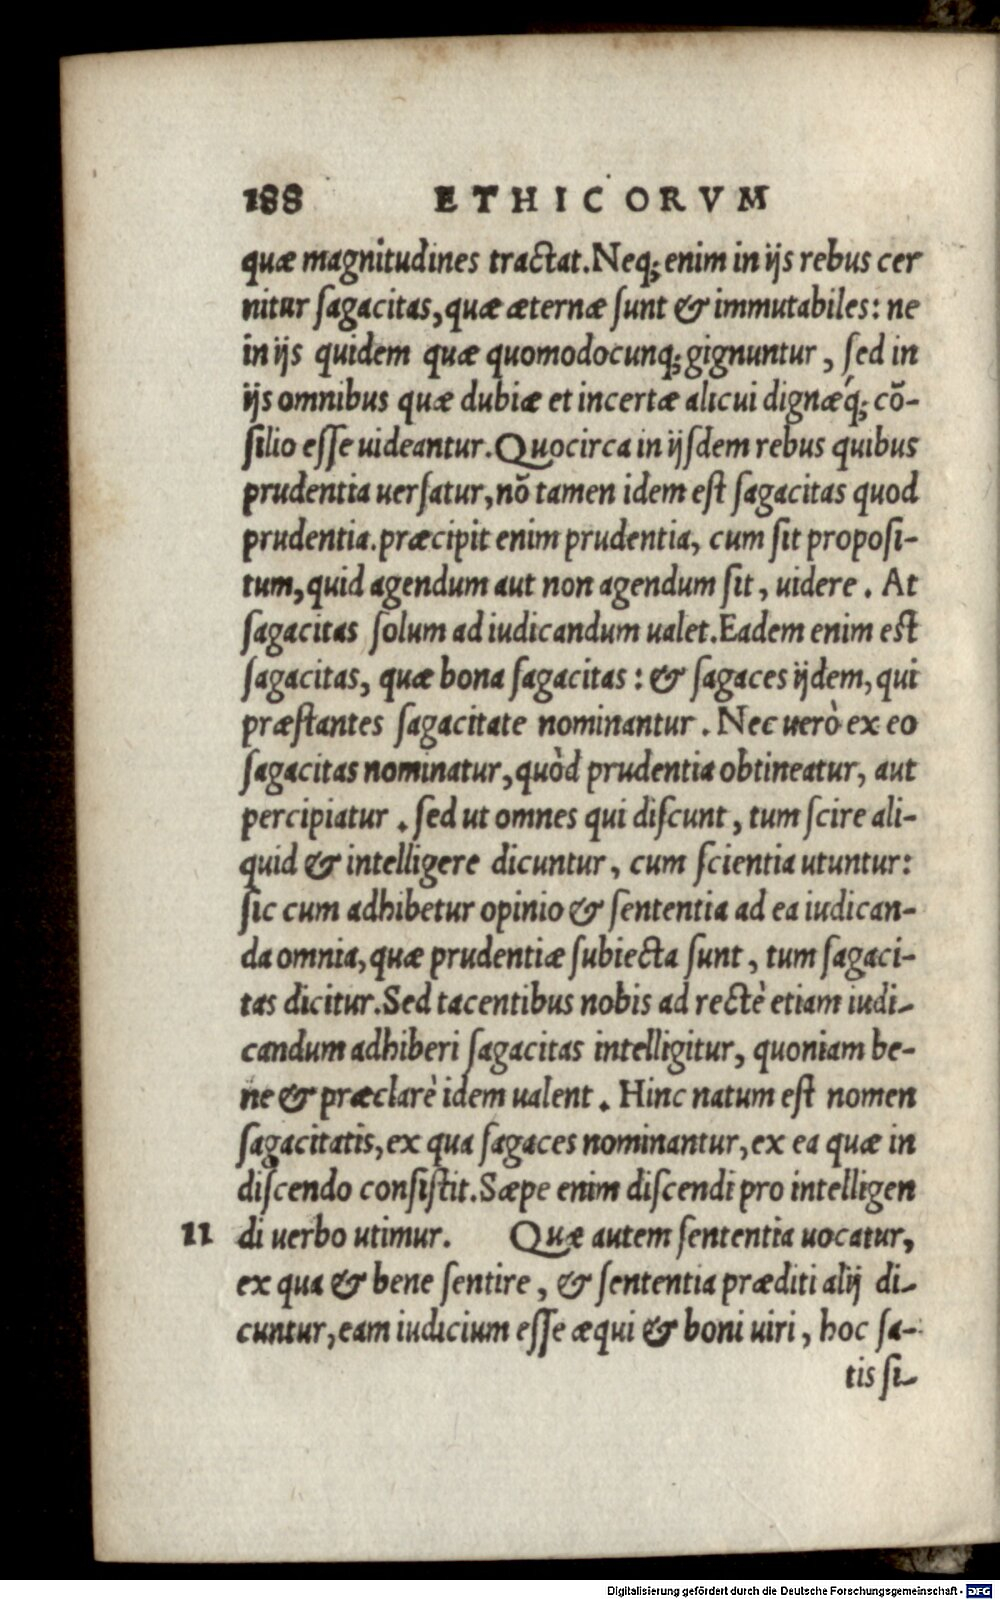 188 ETHICORVM
quæ magnitudines tractat. Neq; enim in ijs rebus cer
nitur sagacitas, quæ æternæ sunt & immutabiles: ne
in ijs quidem quæ quomodocunq; gignuntur, sed in
ijs omnibus quæ dubiæ et incertæ alicui dignæq́; cō-
silio esse uideantur. Quocirca in ijsdem rebus quibus
prudentia uersatur, nō tamen idem est sagacitas quod
prudentia. præcipit enim prudentia, cum sit proposi-
tum, quid agendum aut non agendum sit, uidere. At
sagacitas solum ad iudicandum ualet. Eadem enim est
sagacitas, quæ bona sagacitas: & sagaces ijdem, qui
præstantes sagacitate nominantur. Nec uerò ex eo
sagacitas nominatur, quòd prudentia obtineatur, aut
percipiatur. sed ut omnes qui discunt, tum scire ali-
quid & intelligere dicuntur, cum scientia utuntur:
sic cum adhibetur opinio & sententia ad ea iudican-
da omnia, quæ prudentiæ subiecta sunt, tum sagaci-
tas dicitur. Sed tacentibus nobis ad rectè etiam iudi-
candum adhiberi sagacitas intelligitur, quoniam be-
ne & præclarè idem ualent. Hinc natum est nomen
sagacitatis, ex qua sagaces nominantur, ex ea quæ in
discendo consistit. Sæpe enim discendi pro intelligen
11 di uerbo utimur. Quæ autem sententia uocatur,
ex qua & bene sentire, & sententia præditi alij di-
cuntur, eam iudicium esse æqui & boni uiri, hoc sa-
tis si-
Digitalisierung gefördert durch die Deutsche Forschungsgemeinschaft - DFG